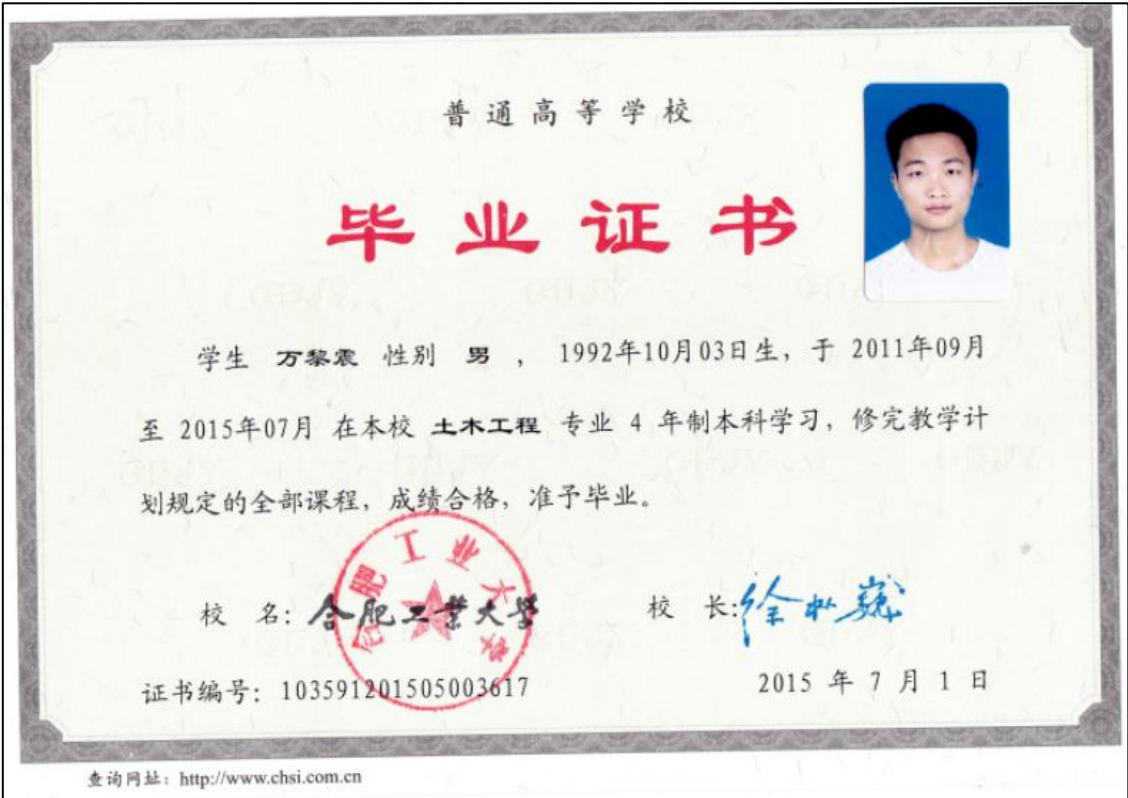 普通高等学校
毕业证书
学生 万黎震 性别 男 ， 1992年10月03日生，于 2011年09月
至 2015年07月 在本校 土木工程 专业 4 年制本科学习，修完教学计
划规定的全部课程，成绩合格，准予毕业。
合肥工业大学
校 名：合肥工業大學 校 长：徐枞巍
证书编号：103591201505003617 2015 年 7 月 1 日
查询网址：http://www.chsi.com.cn